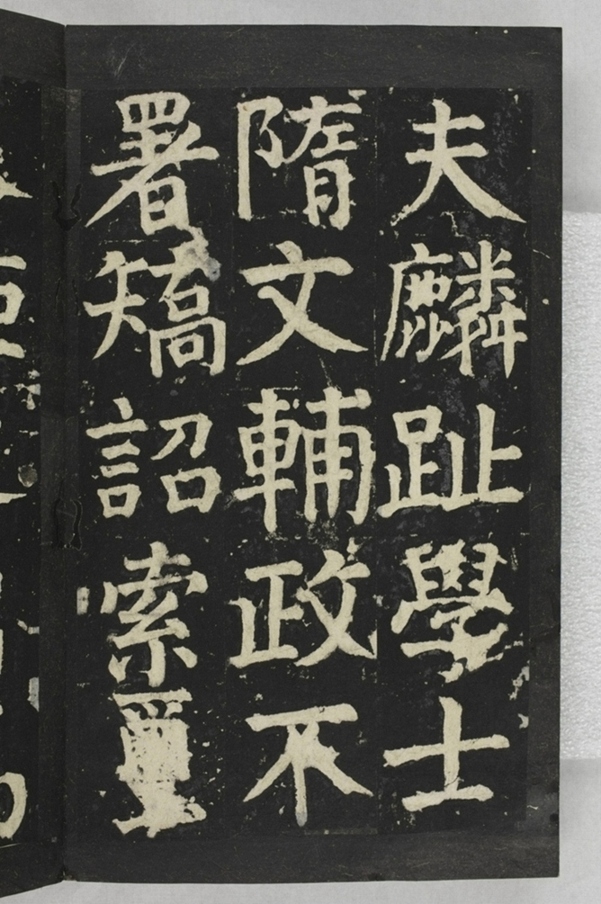 夫麟趾學士
隋文輔政不
署矯詔索璽